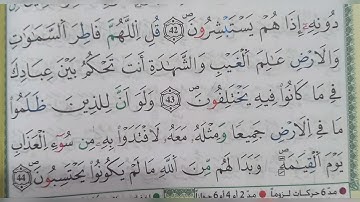 دُونِهِۦٓ إِذَا هُمْ يَسْتَبْشِرُونَ ﴿42﴾ قُلِ اللَّهُمَّ فَاطِرَ السَّمَٰوَٰتِ
وَالْأَرْضِ عَٰلِمَ الْغَيْبِ وَالشَّهَٰدَةِ أَنتَ تَحْكُمُ بَيْنَ عِبَادِكَ
فِي مَا كَانُوا۟ فِيهِ يَخْتَلِفُونَ ﴿43﴾ وَلَوْ أَنَّ لِلَّذِينَ ظَلَمُوا۟
مَا فِي الْأَرْضِ جَمِيعًا وَمِثْلَهُۥ مَعَهُۥ لَافْتَدَوْا۟ بِهِۦ مِن سُوٓءِ الْعَذَابِ
يَوْمَ الْقِيَٰمَةِ ۚ وَبَدَا لَهُم مِّنَ اللَّهِ مَا لَمْ يَكُونُوا۟ يَحْتَسِبُونَ ﴿44﴾
مدّ 6 حركات لزوماً مدّ 2 أو 4 أو 6 جوازاً